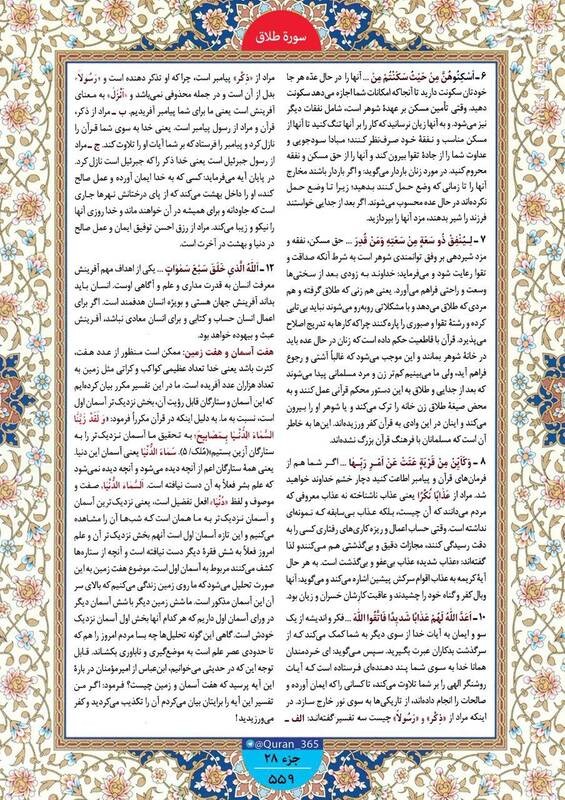 سورة طلاق
۶ ـ اَسْكِنُوهُنَّ مِنْ حَيْثُ سَكَنْتُمْ مِنْ ... آنها را در حال عدّه هر جا
خودتان سکونت دارید تا آنجا که امکانات شما اجازه می‌دهد سکونت
دهید. وقتی تأمین مسکن بر عهدهٔ شوهر است، شامل نفقات دیگر
نیز می‌شود. و به آنها زیان نرسانید که کار را بر آنها تنگ کنید تا آنها از
مسکن مناسب و نفقهٔ خود صرف‌نظر کنند؛ مبادا سودجویی و
عداوت شما را از جادهٔ تقوا بیرون کند و آنها را از حق مسکن و نفقه
محروم کنید. در مورد زنان باردار می‌گوید: و اگر باردار باشند مخارج
آنها را تا زمانی که وضع حمل کنند بدهید؛ زیرا تا وضع حمل
نکرده‌اند در حال عده محسوب می‌شوند. اگر بعد از جدایی خواستند
فرزند را شیر بدهند، مزد آنها را بپردازید.
۷ ـ لِيُنْفِقْ ذُو سَعَةٍ مِنْ سَعَتِهِ وَمَنْ قُدِرَ ... حق مسکن، نفقه و
مزد شیردهی بر وفق توانمندی شوهر است به شرط آنکه صداقت و
تقوا رعایت شود و می‌فرماید: خداوند به زودی بعد از سختی‌ها
وسعت و راحتی فراهم می‌آورد. یعنی هم زنی که طلاق گرفته و هم
مردی که طلاق می‌دهد و با مشکلاتی روبه‌رو می‌شوند نباید بی‌تابی
کرده و رشتهٔ تقوا و صبوری را پاره کنند چرا که کارها به تدریج اصلاح
می‌پذیرد. قرآن با قاطعیت حکم داده است که زنان در حال عده باید
در خانهٔ شوهر بمانند و این موجب می‌شود که غالباً آشتی و رجوع
فراهم آید، ولی ما می‌بینیم کم‌تر زن و مرد مسلمانی پیدا می‌شوند
که بعد از جدایی و طلاق به این دستور محکم قرآنی عمل کنند و به
محض صیغهٔ طلاق زن خانه را ترک می‌کند و یا شوهر او را بیرون
می‌کند و اینان در این وادی به قرآن کفر ورزیده‌اند. این‌ها به خاطر
آن است که مسلمانان با فرهنگ قرآن بزرگ نشده‌اند.
۸ ـ وَكَاَيِّنْ مِنْ قَرْيَةٍ عَتَتْ عَنْ اَمْرِ رَبِّهَا ... اگر شما هم از
فرمان‌های قرآن و پیامبر اطاعت کنید دچار خشم خداوند خواهید
شد. مراد از عَذَابًا نُكْرًا یعنی عذاب ناشناخته نه عذاب معروفی که
مردم می‌دانند که آن چیست، بلکه عذاب بی‌سابقه که نمونه‌ای
نداشته است. وقتی حساب اعمال و ریزه‌کاری‌های رفتاری کسی را به
دقت رسیدگی کنند، مجازات دقیق و بی‌گذشتی هم می‌کنند و لذا
گفته‌اند: «عذاب شدید» عذاب بی‌عفو و بی‌گذشت است. به هر حال
آیهٔ کریمه به عذاب اقوام سرکش پیشین اشاره می‌کند و می‌گوید: آنها
وبال کفر و گناه خود را چشیدند و عاقبت کارشان خسران و زیان بود.
۱۰ ـ اَعَدَّ اللهُ لَهُمْ عَذَابًا شَدِيدًا فَاتَّقُوا اللهَ ... فکر و اندیشه از یک
سو و ایمان به آیات خدا از سوی دیگر به شما کمک می‌کند که از
سرگذشت بدکاران عبرت بگیرید. سپس می‌گوید: ای خردمندان
همانا خدا به سوی شما پند دهنده‌ای فرستاده است که آیات
روشنگر الهی را بر شما تلاوت می‌کند، تا کسانی را که ایمان آورده و
صالحات را انجام داده‌اند، از تاریکی‌ها به سوی نور خارج سازد. در
اینکه مراد از «ذِکْر» و «رَسُولاً» چیست سه تفسیر گفته‌اند: الف ـ
مراد از «ذِکْر» پیامبر است، چرا که او تذکر دهنده است و «رَسُولاً»
بدل از آن است و در جمله محذوفی نمی‌باشد و «اَنْزَلَ» به معنای
آفرینش است یعنی ما برای شما پیامبر آفریدیم. ب ـ مراد از ذکر،
قرآن و مراد از رسول پیامبر است. یعنی خدا به سوی شما قرآن را
نازل کرد و پیامبر را فرستاد که بر شما آیات او را تلاوت کند. ج ـ مراد
از رسول جبرئیل است یعنی خدا ذکر را که جبرئیل است نازل کرد.
در پایان آیه می‌فرماید: کسی که به خدا ایمان آورده و عمل صالح
کند، او را داخل بهشت می‌کند که از پای درختانش نهرها جاری
است که جاودانه و برای همیشه در آن خواهند ماند و خدا روزی آنها
را نیکو و زیبا می‌کند. مراد از رزق احسن توفیق ایمان و عمل صالح
در دنیا و بهشت در آخرت است.
۱۲ ـ اَللهُ الَّذِي خَلَقَ سَبْعَ سَمٰوَاتٍ ... یکی از اهداف مهم آفرینش
معرفت انسان به قدرت مداری و علم و آگاهی اوست. انسان باید
بداند آفرینش جهان هستی و بویژه انسان هدفمند است. اگر برای
اعمال انسان حساب و کتابی و برای انسان معادی نباشد، آفرینش
عبث و بیهوده خواهد بود.
هفت آسمان و هفت زمین: ممکن است منظور از عدد هفت،
کثرت باشد یعنی خدا تعداد عظیمی کواکب و کراتی مثل زمین به
تعداد هزاران عدد آفریده است. ما در این تفسیر مکرر بیان کرده‌ایم
که این آسمان و ستارگان قابل رؤیت آن، بخش نزدیک‌تر آسمان اول
است، نسبت به ما. به دلیل اینکه در قرآن مکرراً فرمود: «وَ لَقَدْ زَيَّنَّا
السَّمَاءَ الدُّنْيَا بِمَصَابِيحَ» به تحقیق ما آسمان نزدیک‌تر را به
ستارگان آزین بستیم»(مُلک/۵). سَمَاءَ الدُّنْيَا یعنی آسمان این دنیا.
یعنی همهٔ ستارگان اعم از آنچه دیده می‌شود و آنچه دیده نمی‌شود
که علم بشر فعلاً به آن دست نیافته است. اَلسَّمَاءَ الدُّنْيَا، صفت و
موصوف و لفظ «دُنْيَا» افعل تفضیل است، یعنی نزدیک‌ترین آسمان
و آسمان نزدیک‌تر به ما همان است که شب‌ها آن را مشاهده
می‌کنیم و این تازه آسمان اول است آنهم بخش نزدیک‌تر آن و علم
امروز فعلاً به شش فقرهٔ دیگر دست نیافته است و آنچه از ستاره‌ها
کشف می‌کنند مربوط به آسمان اول است. موضوع هفت زمین به این
صورت تحلیل می‌شود که ما روی زمین زندگی می‌کنیم که بالای سر
آن این آسمان مذکور است. ما شش زمین دیگر با شش آسمان دیگر
در ورای آسمان اول داریم که هر کدام آنها بخش اول آسمان نزدیک
خودش است. گاهی این گونه تحلیل‌ها چه بسا مردم امروز را هم که
تا حدودی عصر علم است به موضع‌گیری و ناباوری بکشاند. قابل
توجه این که در حدیثی می‌خوانیم، ابن‌عباس از امیرمؤمنان در بارهٔ
این آیه پرسید که هفت آسمان و زمین چیست؟ فرمود: اگر من
تفسیر این آیه را برایتان بیان می‌کردم آن را تکذیب می‌کردید و کفر
می‌ورزیدید!
@Quran_365
جزء ۲۸
۵۵۹